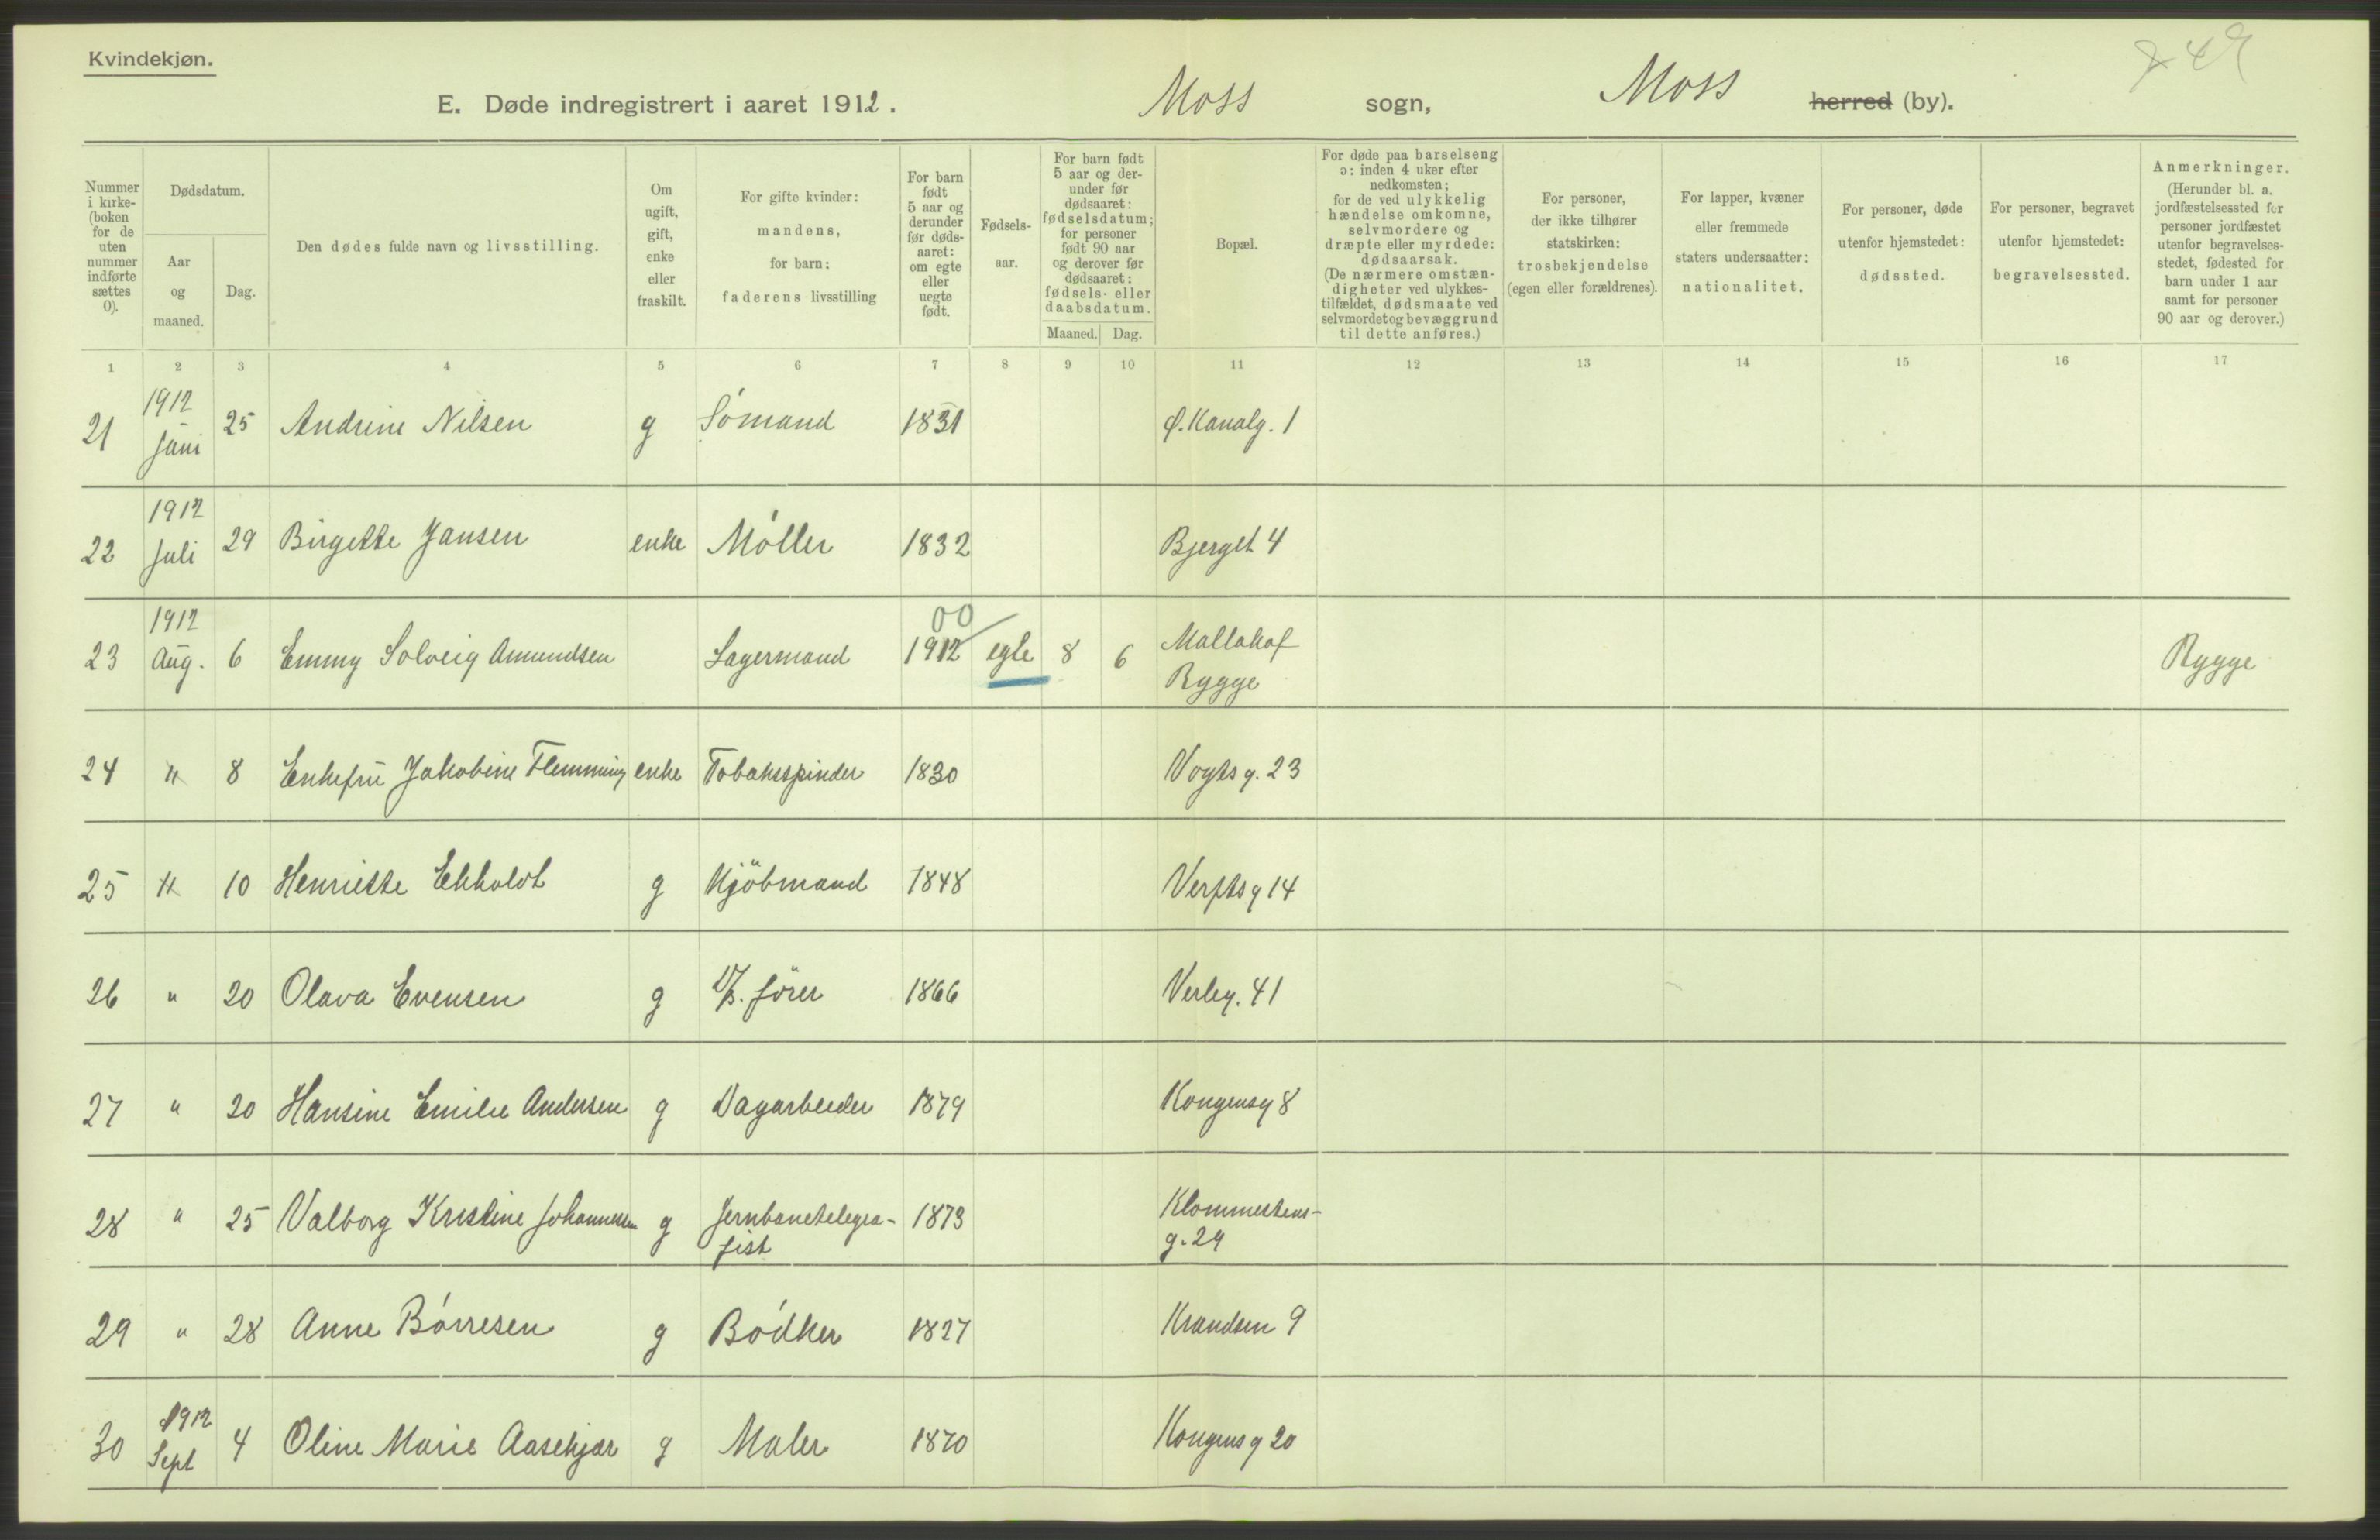 Kvindekjøn.
E. Døde indregistrert i aaret 1912. Moss sogn, Moss herred (by).
Nummer i kirke- (boken for de uten nummer indførte sættes 0).
Dødsdatum.
Aar og maaned.
Dag.
Den dødes fulde navn og livsstilling.
Om ugift, gift, enke eller fraskilt.
For gifte kvinder: mandens, for barn: faderens livsstilling
For barn født 5 aar og derunder før døds- aaret: om egte eller uegte født.
Fødsels- aar.
For barn født 5 aar og der- under før dødsaaret: fødselsdatum; for personer født 90 aar og derover før dødsaaret: fødsels- eller daabsdatum.
Maaned. Dag.
Bopæl.
For døde paa barselseng ɔ: inden 4 uker efter nedkomsten; for de ved ulykkelig hændelse omkomne, selvmordere og dræpte eller myrdede: dødsaarsak. (De nærmere omstæn- digheter ved ulykkes- tilfældet, dødsmaate ved selvmordet og bevæggrund til dette anføres.)
For personer, der ikke tilhører statskirken: trosbekjendelse (egen eller forældrenes).
For lapper, kvæner eller fremmede staters undersaatter: nationalitet.
For personer, døde utenfor hjemstedet: dødssted.
For personer, begravet utenfor hjemstedet: begravelsessted.
Anmerkninger. (Herunder bl. a. jordfæstelsessted for personer jordfæstet utenfor begravelses- stedet, fødested for barn under 1 aar samt for personer 90 aar og derover.)
1 2 3 4 5 6 7 8 9 10 11 12 13 14 15 16 17
21 1912 Juni 25 Andrine Nilsen g Sømand 1831 Ø. Kanalg. 1
22 1912 Juli 29 Birgette Jansen enke Møller 1832 Bjerget 4
23 1912 Aug. 6 Emmy Solveig Amundsen Lagermand 00 1912 egte 8 6 Mallakof Rygge Rygge
24 " 8 Enkefru Jakobine Flemming enke Tobaksspinder 1830 Vogts g. 23
25 " 10 Henriette Ekholdt g Kjöbmand 1848 Verfts g 14
26 " 20 Olava Evensen g förer 1866 Verleg. 41
27 " 20 Hansine Emilie Andersen g Dagarbeider 1879 Kongensg 8
28 " 25 Valborg Kristine Johannesen g Jernbanetelegra- fist 1873 Klommestens- g. 29
29 " 28 Anne Børresen g Bødker 1827 Krandsen 9
30 1912 Sept 4 Oline Marie Aasekjær g Maler 1870 Kongens g 20